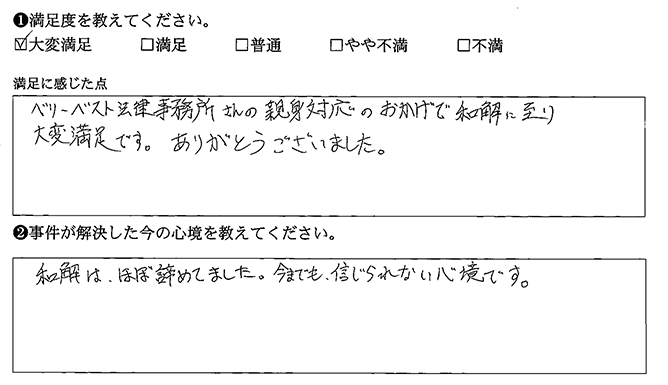 ❶満足度を教えてください。
☑大変満足 □満足 □普通 □やや不満 □不満
満足に感じた点
ベリーベスト法律事務所さんの親身対応のおかげで和解に至り
大変満足です。ありがとうございました。
❷事件が解決した今の心境を教えてください。
和解は、ほぼ諦めてました。今までも、信じられない心境です。